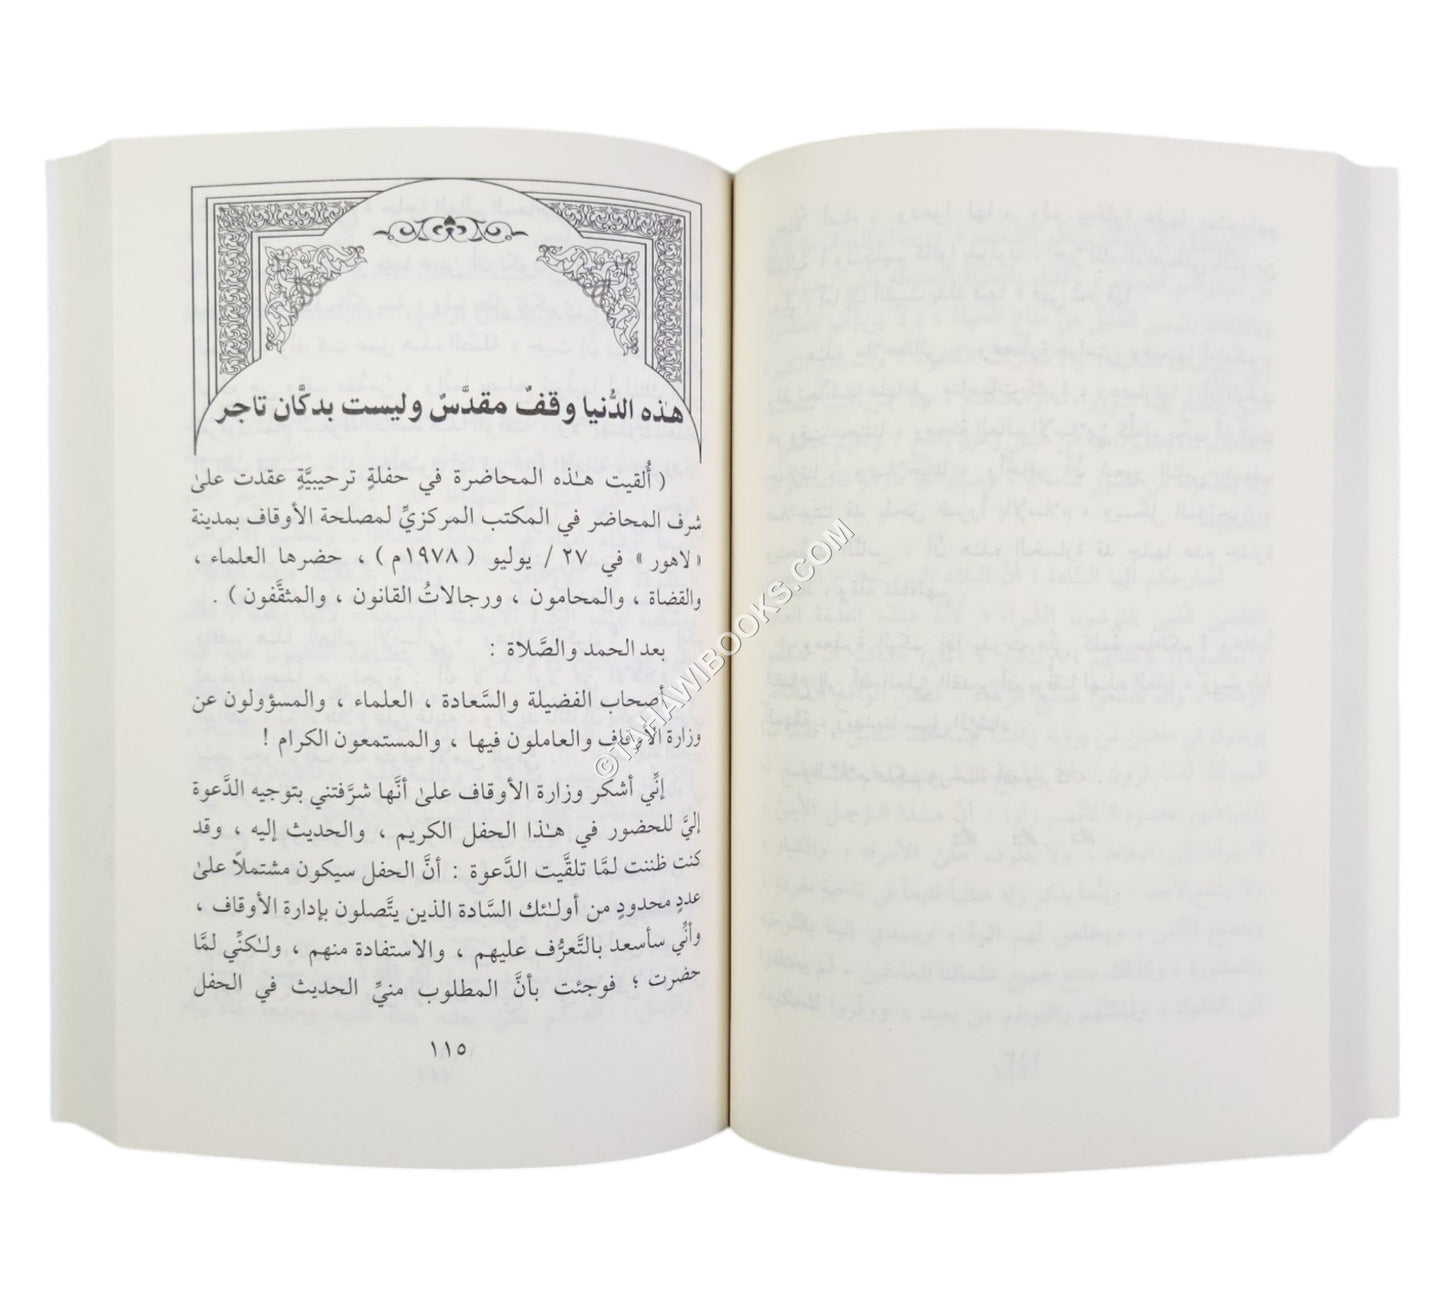 هذه الدُّنيا وقفٌ مقدَّسٌ وليست بدكَّان تاجر
( أُلقيت هـٰذه المحاضرة في حفلةٍ ترحيبيَّةٍ عقدت علىٰ
شرف المحاضر في المكتب المركزيِّ لمصلحة الأوقاف بمدينة
« لاهور » في ٢٧ / يوليو ( ١٩٧٨م ) ، حضرها العلماء ،
والقضاة ، والمحامون ، ورجالاتُ القانون ، والمثقَّفون ) .
بعد الحمد والصَّلاة :
أصحاب الفضيلة والسَّعادة ، العلماء ، والمسؤولون عن
وزارة الأوقاف والعاملون فيها ، والمستمعون الكرام !
إنِّي أشكر وزارة الأوقاف علىٰ أنَّها شرَّفتني بتوجيه الدَّعوة
إليَّ للحضور في هـٰذا الحفل الكريم ، والحديث إليه ، وقد
كنت ظننت لمَّا تلقَّيت الدَّعوة : أنَّ الحفل سيكون مشتملاً علىٰ
عددٍ محدودٍ من أولـٰئك السَّادة الذين يتَّصلون بإدارة الأوقاف ،
وأنِّي سأسعد بالتَّعرُّف عليهم ، والاستفادة منهم ، ولـٰكنِّي لمَّا
حضرت ؛ فوجئت بأنَّ المطلوب منيِّ الحديث في الحفل
١١٥
©TAHAWIBOOKS.COM